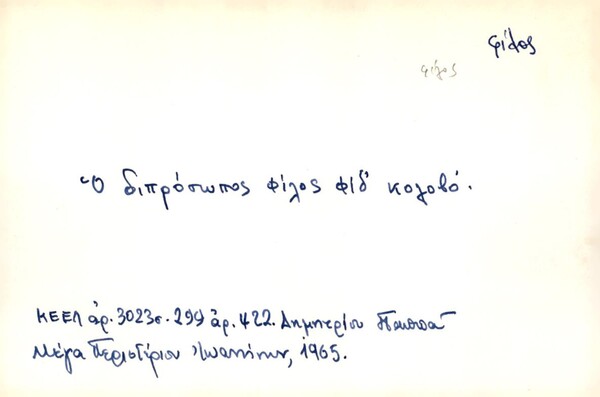 φίλος
φίλος
Ὁ διπρόσωπος φίλος φίδ' κολοβό.
ΚΕΕΛ ἀρ. 3023 σ. 299 ἀρ. 422. Δημητρίου
Μέγα Περιστέριον Ἰωαννίνων, 1965.